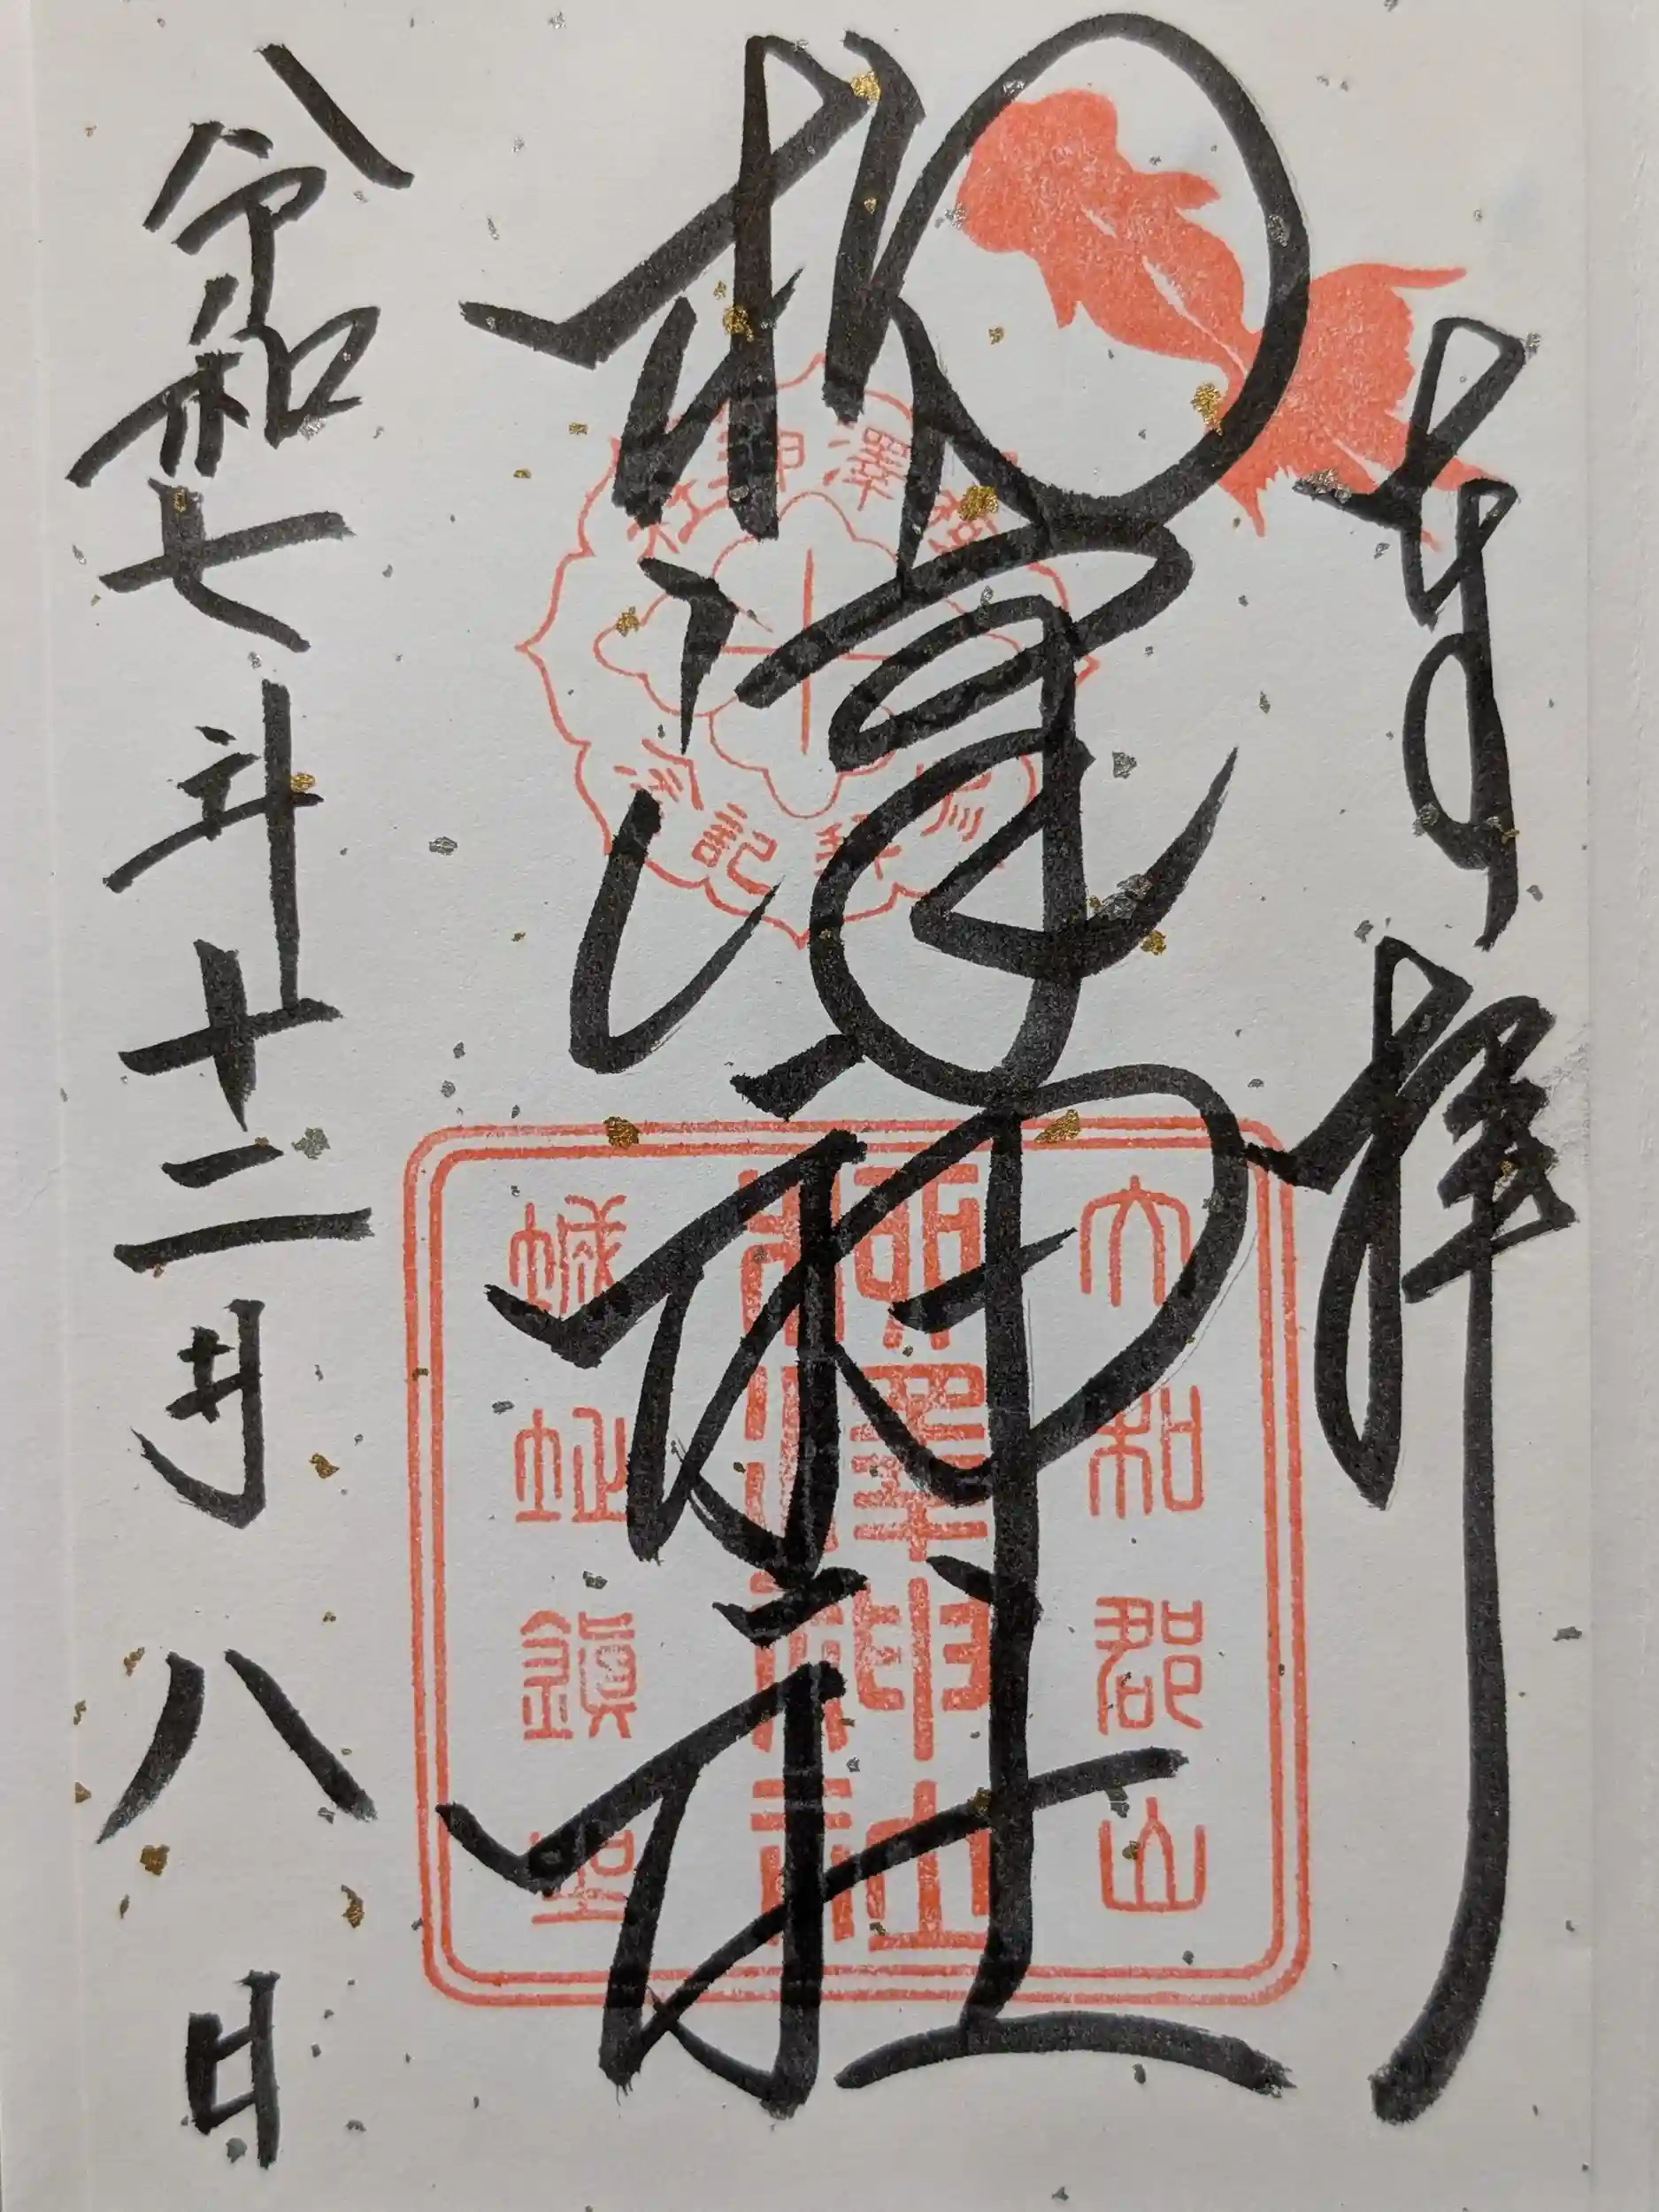 奉拝
柳澤神社
令和七年十二月八日
柳澤神社
参拝記念
大和郡山
柳澤神社
城址鎮座